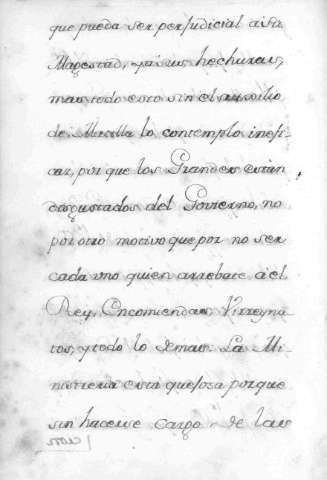 que pueda ser perjudicial a su
Magestad, y a sus hechuras,
mas todo esto sin el auxilio
de Mecilla lo contemplo inefi-
caz, por que los Grandes están
disgustados del Govierno, no
por otro motivo que por no ser
cada uno quien arrebate a el
Rey, Encomiendas, Virreyna
tos, y todo lo demas. La Mi-
nistreria esta quejosa porque
sin hacerse cargo de las